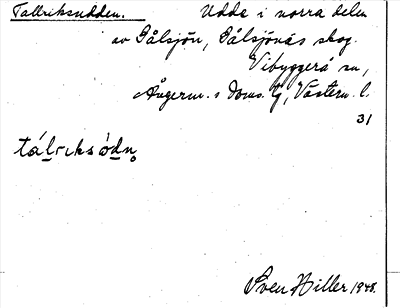 Tallriksudden. Udde i norra delen
av Gålsjön, Gålsjönäs skog.
Vibyggerå sn,
Ångerm. s Doms. G, Västern. l.
31
tálriksòdn̥
Sven Hiller 1948.